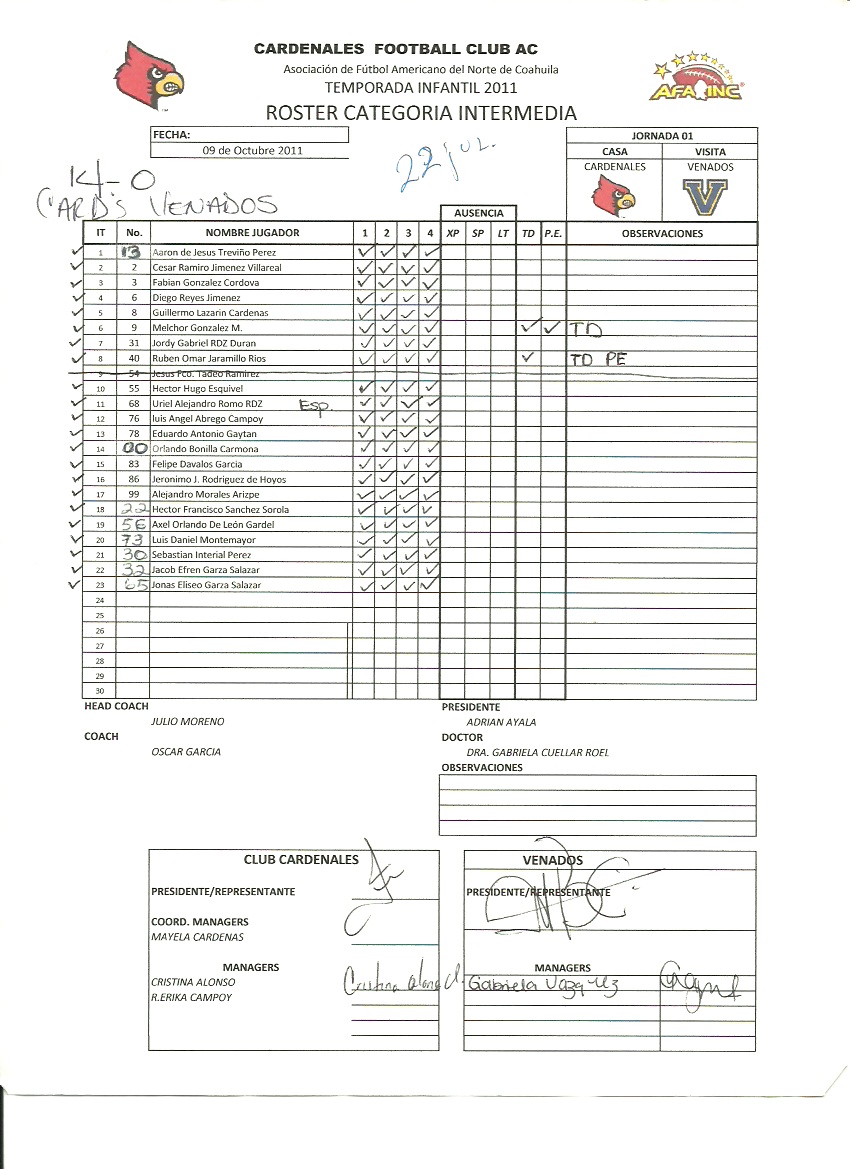 CARDENALES FOOTBALL CLUB AC
Asociación de Fútbol Americano del Norte de Coahuila
TEMPORADA INFANTIL 2011
ROSTER CATEGORIA INTERMEDIA
AFAINC
FECHA:
09 de Octubre 2011
22 jul.
JORNADA 01
CASA VISITA
CARDENALES VENADOS
V
14-0
CARD'S VENADOS
AUSENCIA
IT No. NOMBRE JUGADOR 1 2 3 4 XP SP LT TD P.E. OBSERVACIONES
✓ 1 13 Aaron de Jesus Treviño Perez ✓ ✓ ✓ ✓
✓ 2 2 Cesar Ramiro Jimenez Villareal ✓ ✓ ✓ ✓
✓ 3 3 Fabian Gonzalez Cordova ✓ ✓ ✓ ✓
✓ 4 6 Diego Reyes Jimenez ✓ ✓ ✓ ✓
✓ 5 8 Guillermo Lazarin Cardenas ✓ ✓ ✓ ✓
✓ 6 9 Melchor Gonzalez M. ✓ ✓ ✓ ✓ ✓ ✓ TD
✓ 7 31 Jordy Gabriel RDZ Duran ✓ ✓ ✓ ✓
✓ 8 40 Ruben Omar Jaramillo Rios ✓ ✓ ✓ ✓ ✓ TD PE
9 54 Jesus Fco. Tadeo Ramirez
✓ 10 55 Hector Hugo Esquivel ✓ ✓ ✓ ✓
✓ 11 68 Uriel Alejandro Romo RDZ Esp. ✓ ✓ ✓ ✓
✓ 12 76 luis Angel Abrego Campoy ✓ ✓ ✓ ✓
✓ 13 78 Eduardo Antonio Gaytan ✓ ✓ ✓ ✓
✓ 14 00 Orlando Bonilla Carmona ✓ ✓ ✓ ✓
✓ 15 83 Felipe Davalos Garcia ✓ ✓ ✓ ✓
✓ 16 86 Jeronimo J. Rodriguez de Hoyos ✓ ✓ ✓ ✓
✓ 17 99 Alejandro Morales Arizpe ✓ ✓ ✓ ✓
✓ 18 22 Hector Francisco Sanchez Sorola ✓ ✓ ✓ ✓
✓ 19 56 Axel Orlando De León Gardel ✓ ✓ ✓ ✓
✓ 20 73 Luis Daniel Montemayor ✓ ✓ ✓ ✓
✓ 21 30 Sebastian Interial Perez ✓ ✓ ✓ ✓
✓ 22 32 Jacob Efren Garza Salazar ✓ ✓ ✓ ✓
✓ 23 65 Jonas Eliseo Garza Salazar ✓ ✓ ✓ ✓
24
25
26
27
28
29
30
HEAD COACH PRESIDENTE
JULIO MORENO ADRIAN AYALA
COACH DOCTOR
OSCAR GARCIA DRA. GABRIELA CUELLAR ROEL
OBSERVACIONES
CLUB CARDENALES VENADOS
PRESIDENTE/REPRESENTANTE PRESIDENTE/REPRESENTANTE
COORD. MANAGERS
MAYELA CARDENAS
MANAGERS MANAGERS
CRISTINA ALONSO Gabriela Vazquez
R.ERIKA CAMPOY